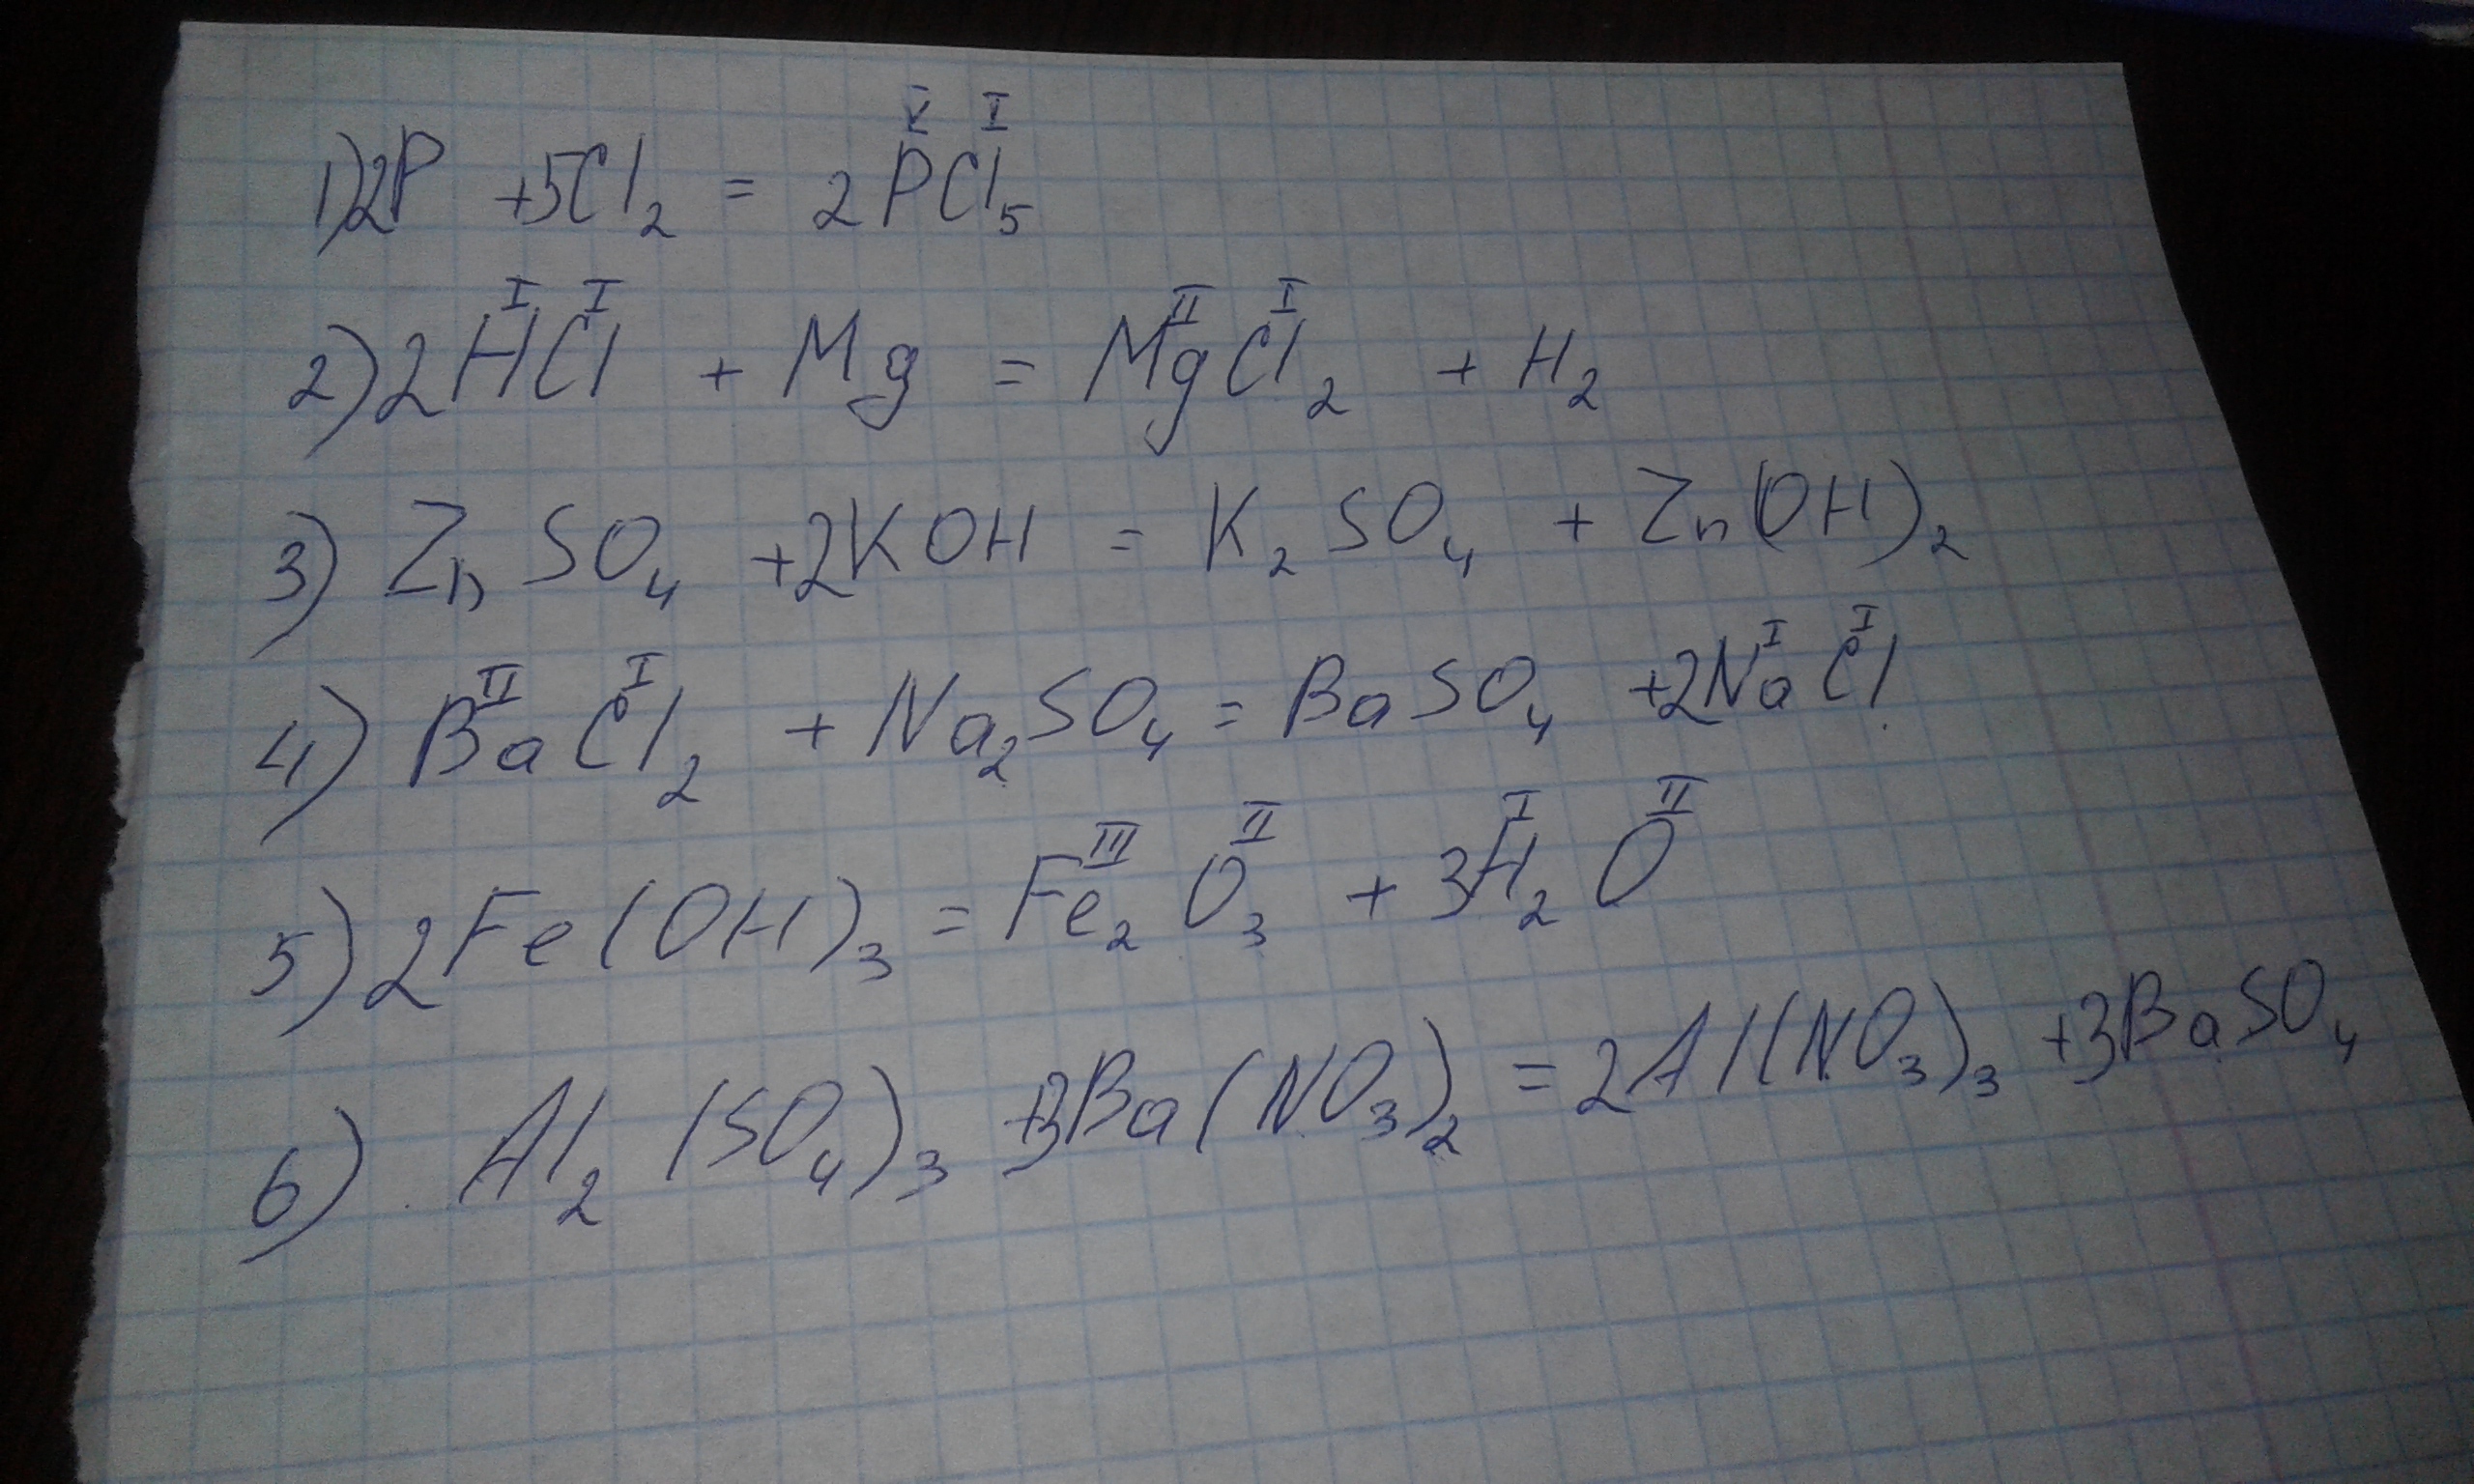 1) 2P + 5Cl₂ = 2P^V Cl^I ₅
2) 2H^I Cl^I + Mg = Mg^II Cl^I ₂ + H₂
3) ZnSO₄ + 2KOH = K₂SO₄ + Zn(OH)₂
4) Ba^II Cl^I ₂ + Na₂SO₄ = BaSO₄ + 2Na^I Cl^I
5) 2Fe(OH)₃ = Fe^III ₂ O^II ₃ + 3H^I ₂ O^II
6) Al₂(SO₄)₃ + 3Ba(NO₃)₂ = 2Al(NO₃)₃ + 3BaSO₄